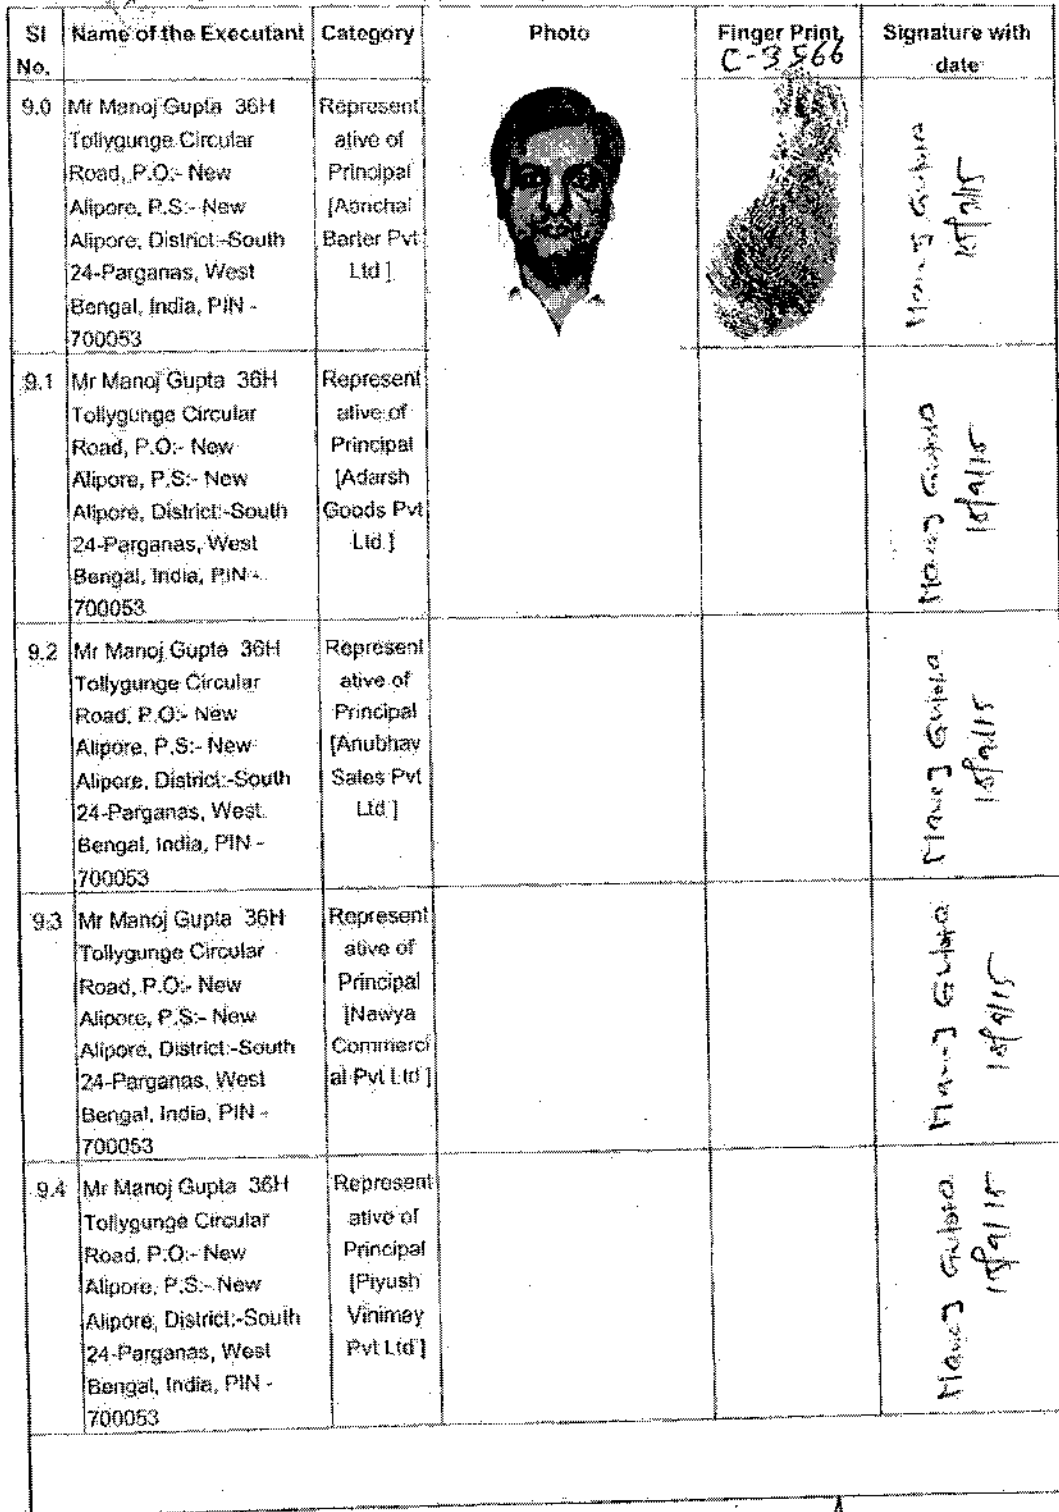 Sl No. Name of the Executant Category Photo Finger Print Signature with date
C-3566
9.0 Mr Manoj Gupta 36H
Tollygunge Circular
Road, P.O:- New
Alipore, P.S:- New
Alipore, District:-South
24-Parganas, West
Bengal, India, PIN -
700053
Represent
ative of
Principal
[Abnchal
Barter Pvt
Ltd ]
Manoj Gupta
15/9/15
9.1 Mr Manoj Gupta 36H
Tollygunge Circular
Road, P.O:- New
Alipore, P.S:- New
Alipore, District:-South
24-Parganas, West
Bengal, India, PIN -
700053
Represent
ative of
Principal
[Adarsh
Goods Pvt
Ltd.]
Manoj Gupta
15/9/15
9.2 Mr Manoj Gupta 36H
Tollygunge Circular
Road, P.O:- New
Alipore, P.S:- New
Alipore, District:-South
24-Parganas, West
Bengal, India, PIN -
700053
Represent
ative of
Principal
[Anubhav
Sales Pvt
Ltd ]
Manoj Gupta
15/9/15
9.3 Mr Manoj Gupta 36H
Tollygunge Circular
Road, P.O:- New
Alipore, P.S:- New
Alipore, District:-South
24-Parganas, West
Bengal, India, PIN -
700053
Represent
ative of
Principal
[Nawya
Commerci
al Pvt Ltd ]
Manoj Gupta
15/9/15
9.4 Mr Manoj Gupta 36H
Tollygunge Circular
Road, P.O:- New
Alipore, P.S:- New
Alipore, District:-South
24-Parganas, West
Bengal, India, PIN -
700053
Represent
ative of
Principal
[Piyush
Vinimay
Pvt Ltd ]
Manoj Gupta
15/9/15